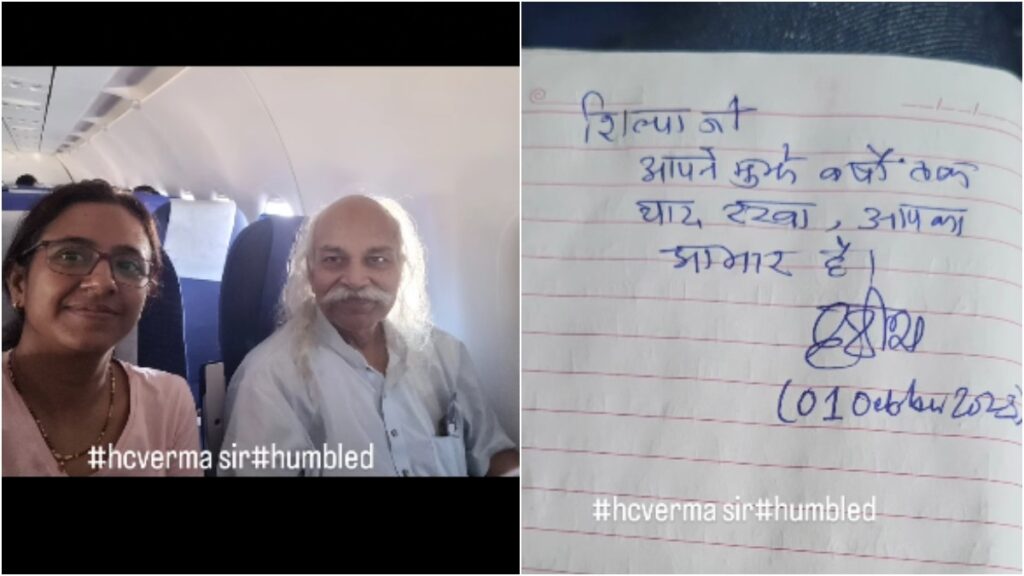 #hcverma sir#humbled
शिल्पा जी
आपने मुझे वर्षों तक
याद रखा, आपका
आभार है।
(01 October 2023)
#hcverma sir#humbled